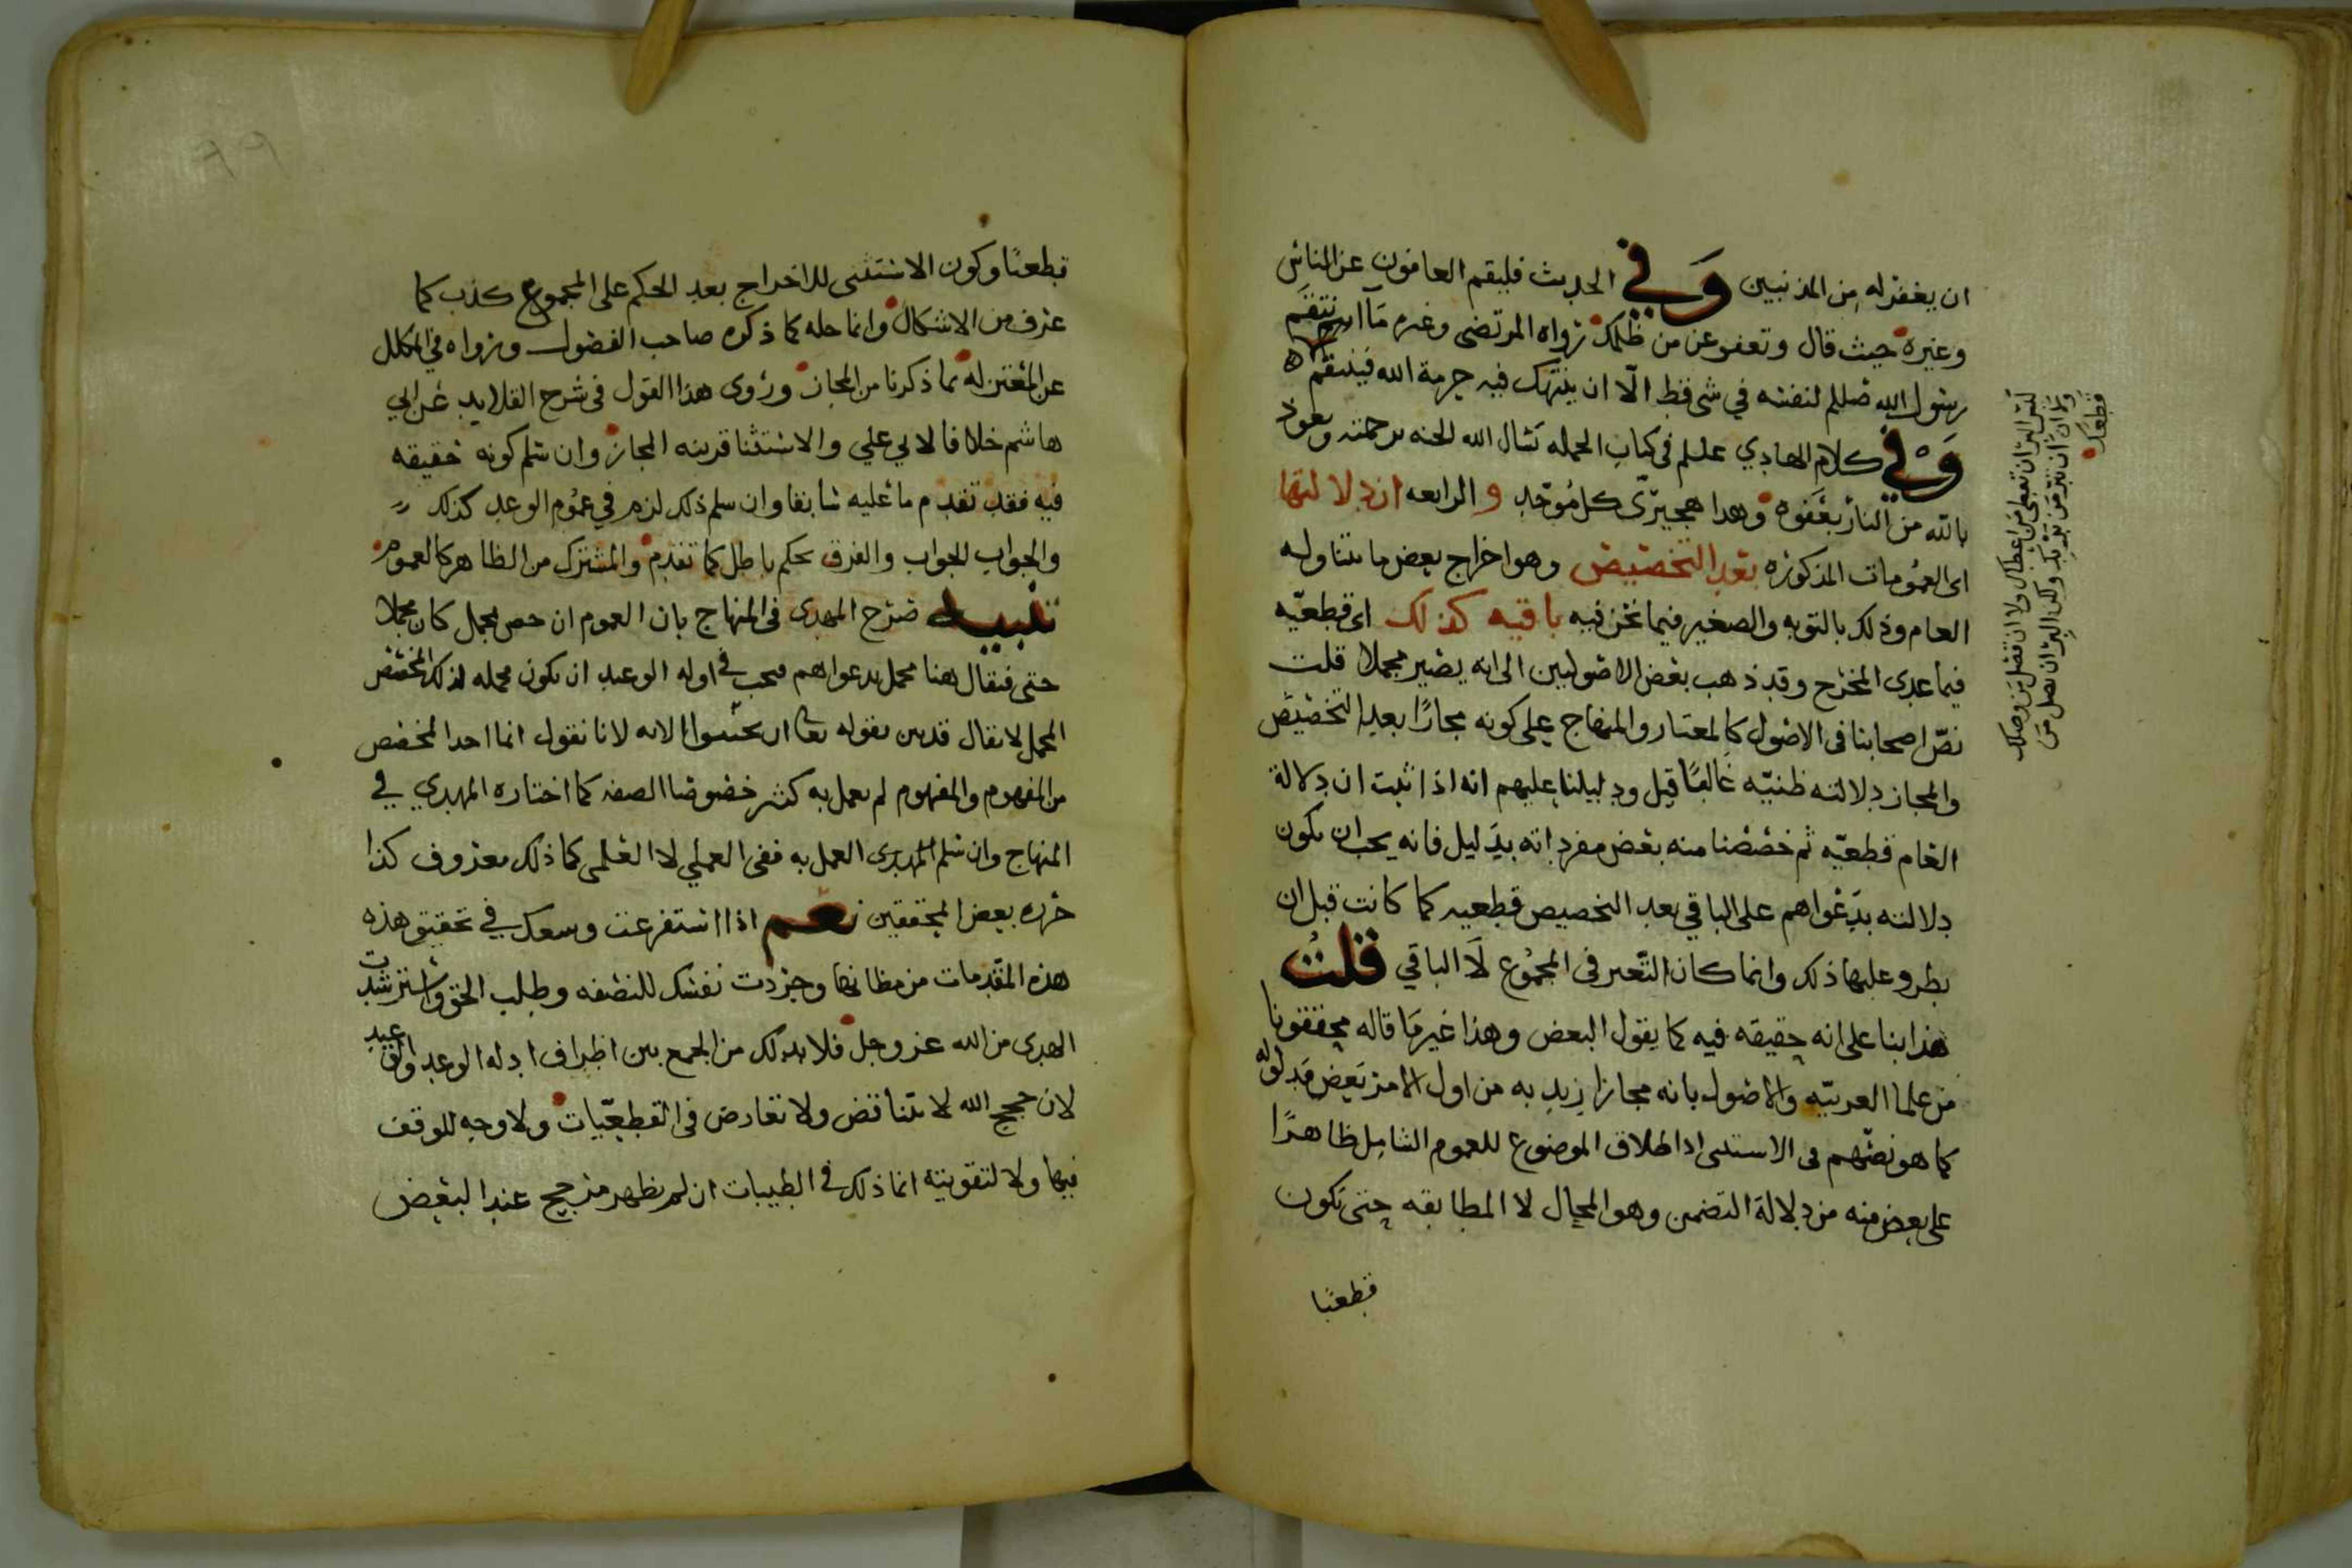 ان يغفر له من المذنبين وفي الحديث فليقم العافون عن الناس
وغيره حيث قال وتعفو عن من ظلمك رواه المرتضى وغيره ما انتقم
رسول الله صللم لنفسه في شي قط الّا ان ينتهك فيه حرمة الله فينتقم
وفي كلام الهادي علىلم فى كتاب الجمله نسال الله الجنه برحمته ونعوذ
بالله من النار بعفوه وهذا هجيرّى كل موّحد و الرابعه ان دلالتها
اى العمومات المذكوره بعد التخصيص وهو اخراج بعض ما يتناوله
العام وذلك بالتوبه والصغير فيما نحن فيه باقيه كذلك اى قطعيّه
فيما عدى المخرج وقد ذهب بعض الاصوليين الى انه يصير مجملا قلت
نصّ اصحابنا فى الاصول كالمعيار والمنهاج على كونه مجازًا بعد التخصيص
والمجاز دلالته ظنيّه غالبًا قيل ودليلنا عليهم انه اذا ثبت ان دلالة
العام قطعيّه ثم خصّصنا منه بعض مفرداته بدليل فانه يجب ان يكون
دلالته بدعواهم على الباقي بعد التخصيص قطعيه كما كانت قبل ان
يطرو عليها ذلك وانما كان التّعير فى المجموع لا الباقي قلتُ
هذا بنا على انه حقيقه فيه كما يقول البعض وهذا غير ما قاله محققونا
من علما العربيّه والاصول بانه مجاز اريد به من اول الامر بعض مدلوله
كما هو نصّهم فى الاستثنى اذ اطلاق الموضوع للعموم الشامل ظاهرًا
على بعض منه من دلالة التضمن وهو المجال لا المطابقه حتى تكون
قطعيًا
ليس البرّ ان تعطى من اعطاك ولا ان تصل من وصلك
ولا ان تبرّ من بوّك ولكن البرّ ان تصل من
قطعك
قطعيًا وكون الاستثنى للاخراج بعد الحكم على المجموع كذب كما
عرف من الاشكال وانما حله كما ذكره صاحب الفصول ورواه في المكلل
عن المعتزله بما ذكرنا من المجاز وروى هذا القول فى شرح القلايد عن ابي
هاشم خلافا لابي علي والاستثنا قرينه المجاز وان سلم كونه حقيقه
فيه فقد تقدم ما عليه سابقا وان سلم ذلك لزم في عموم الوعد كذلك
والجواب الجواب والفرق تحكم باطل كما تقدم والمشترك من الظاهر كالعموم
تنبيه صرّح المهدى فى المنهاج بان العموم ان خص بمجمل كان مجملا
حتى فيقال هنا مجمل بدعواهم فيجب في اوله الوعيد ان تكون مجمله لذلك المخصص
المجمل لا يقال قد بين بقوله تعا ان تجتنبوا الايه لانا نقول انما احدا لمخصص
من المفهوم والمفهوم لم يعمل به كثير خصوصا الصفه كما اختاره المهدي في
المنهاج وان سلم المهدى العمل به ففى العملي لا العلمى كما ذلك معروف كذا
حرره بعض المحققين نعم اذا استفرغت وسعك في تحقيق هذه
هذه المقدمات من مظانها وجردت نفسك للنصفه وطلب الحق واسترشدت
الهدى من الله عز وجل فلا بد لك من الجمع بين اطراف ادله الوعد والوعيد
لان حجج الله لا تتناقض ولا تعارض فى القطعيّات ولا وجه للوقف
فيها ولا لتقويته انما ذلك في الظنيات ان لم يظهر مرجح عند البعض